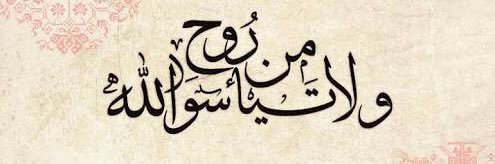 ولا تيأسوا
من روح الله